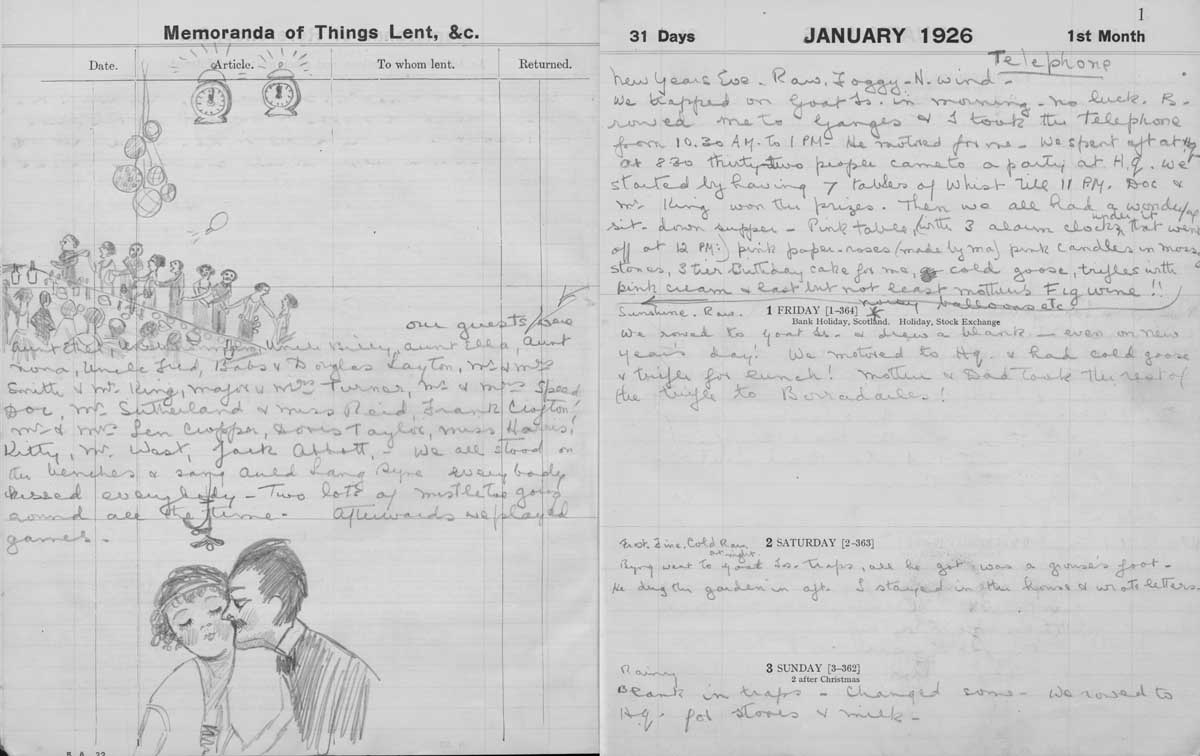 Memoranda of Things Lent, &c.
Date. Article. To whom lent. Returned.
our guests were
Aunt Ethel, Uncle Billy, Aunt Ella, Aunt
Nona, Uncle Fred, Babs & Douglas Layton, Mr & Mrs
Smith & Mr King, Major & Mrs Turner, Mr & Mrs Speed
Doc, Mr Sutherland & Miss Reid, Frank Crofton!
Mr & Mrs Len Cropper, Doris Taylor, Miss Harris!
Kitty, Mr West, Jack Abbott, - We all stood on
the benches & sang Auld Lang Syne everybody
kissed everybody - Two lots of mistletoe going
around all the time - Afterwards we played
games -
1
31 Days JANUARY 1926 1st Month
Telephone
New Years Eve - Raw, Foggy - N. wind -
We trapped on Goat Is. in morning - no luck. B-
rowed me to Ganges & I took the Telephone
from 10.30 AM. To 1 PM - He motored for me - We spent aft at Hq
at 8.30 thirty-two people came to a party at H.q. We
started by having 7 tables of Whist till 11 PM. Doc &
Mr King won the prizes. Then we all had a wonderful
sit-down supper - Pink table, (with 3 alarm clocks under it that went
off at 12 PM:) pink paper-roses (made by ma) pink candles in moss,
stones, 3 tier Birthday cake for me, cold goose, trifles with
pink cream & last but not least mother's Fig wine!!
noisy balloons etc
Sunshine. Raw. 1 FRIDAY [1–364]
Bank Holiday, Scotland. Holiday, Stock Exchange
We rowed to Goat Is - & drew a blank - even on new
year's day! We motored to Hq. & had cold goose
& trifle for lunch! Mother & Dad took the rest of
the trifle to Borradailes!
East. Fine. Cold Rain at night. 2 SATURDAY [2–363]
Byng went to Goat Is. traps, all he got was a grouse's foot -
He dug the garden in aft. I stayed in the house & wrote letters.
Rainy 3 SUNDAY [3–362]
2 after Christmas
Blank in traps - Changed some - We rowed to
Hq. for stores & milk -